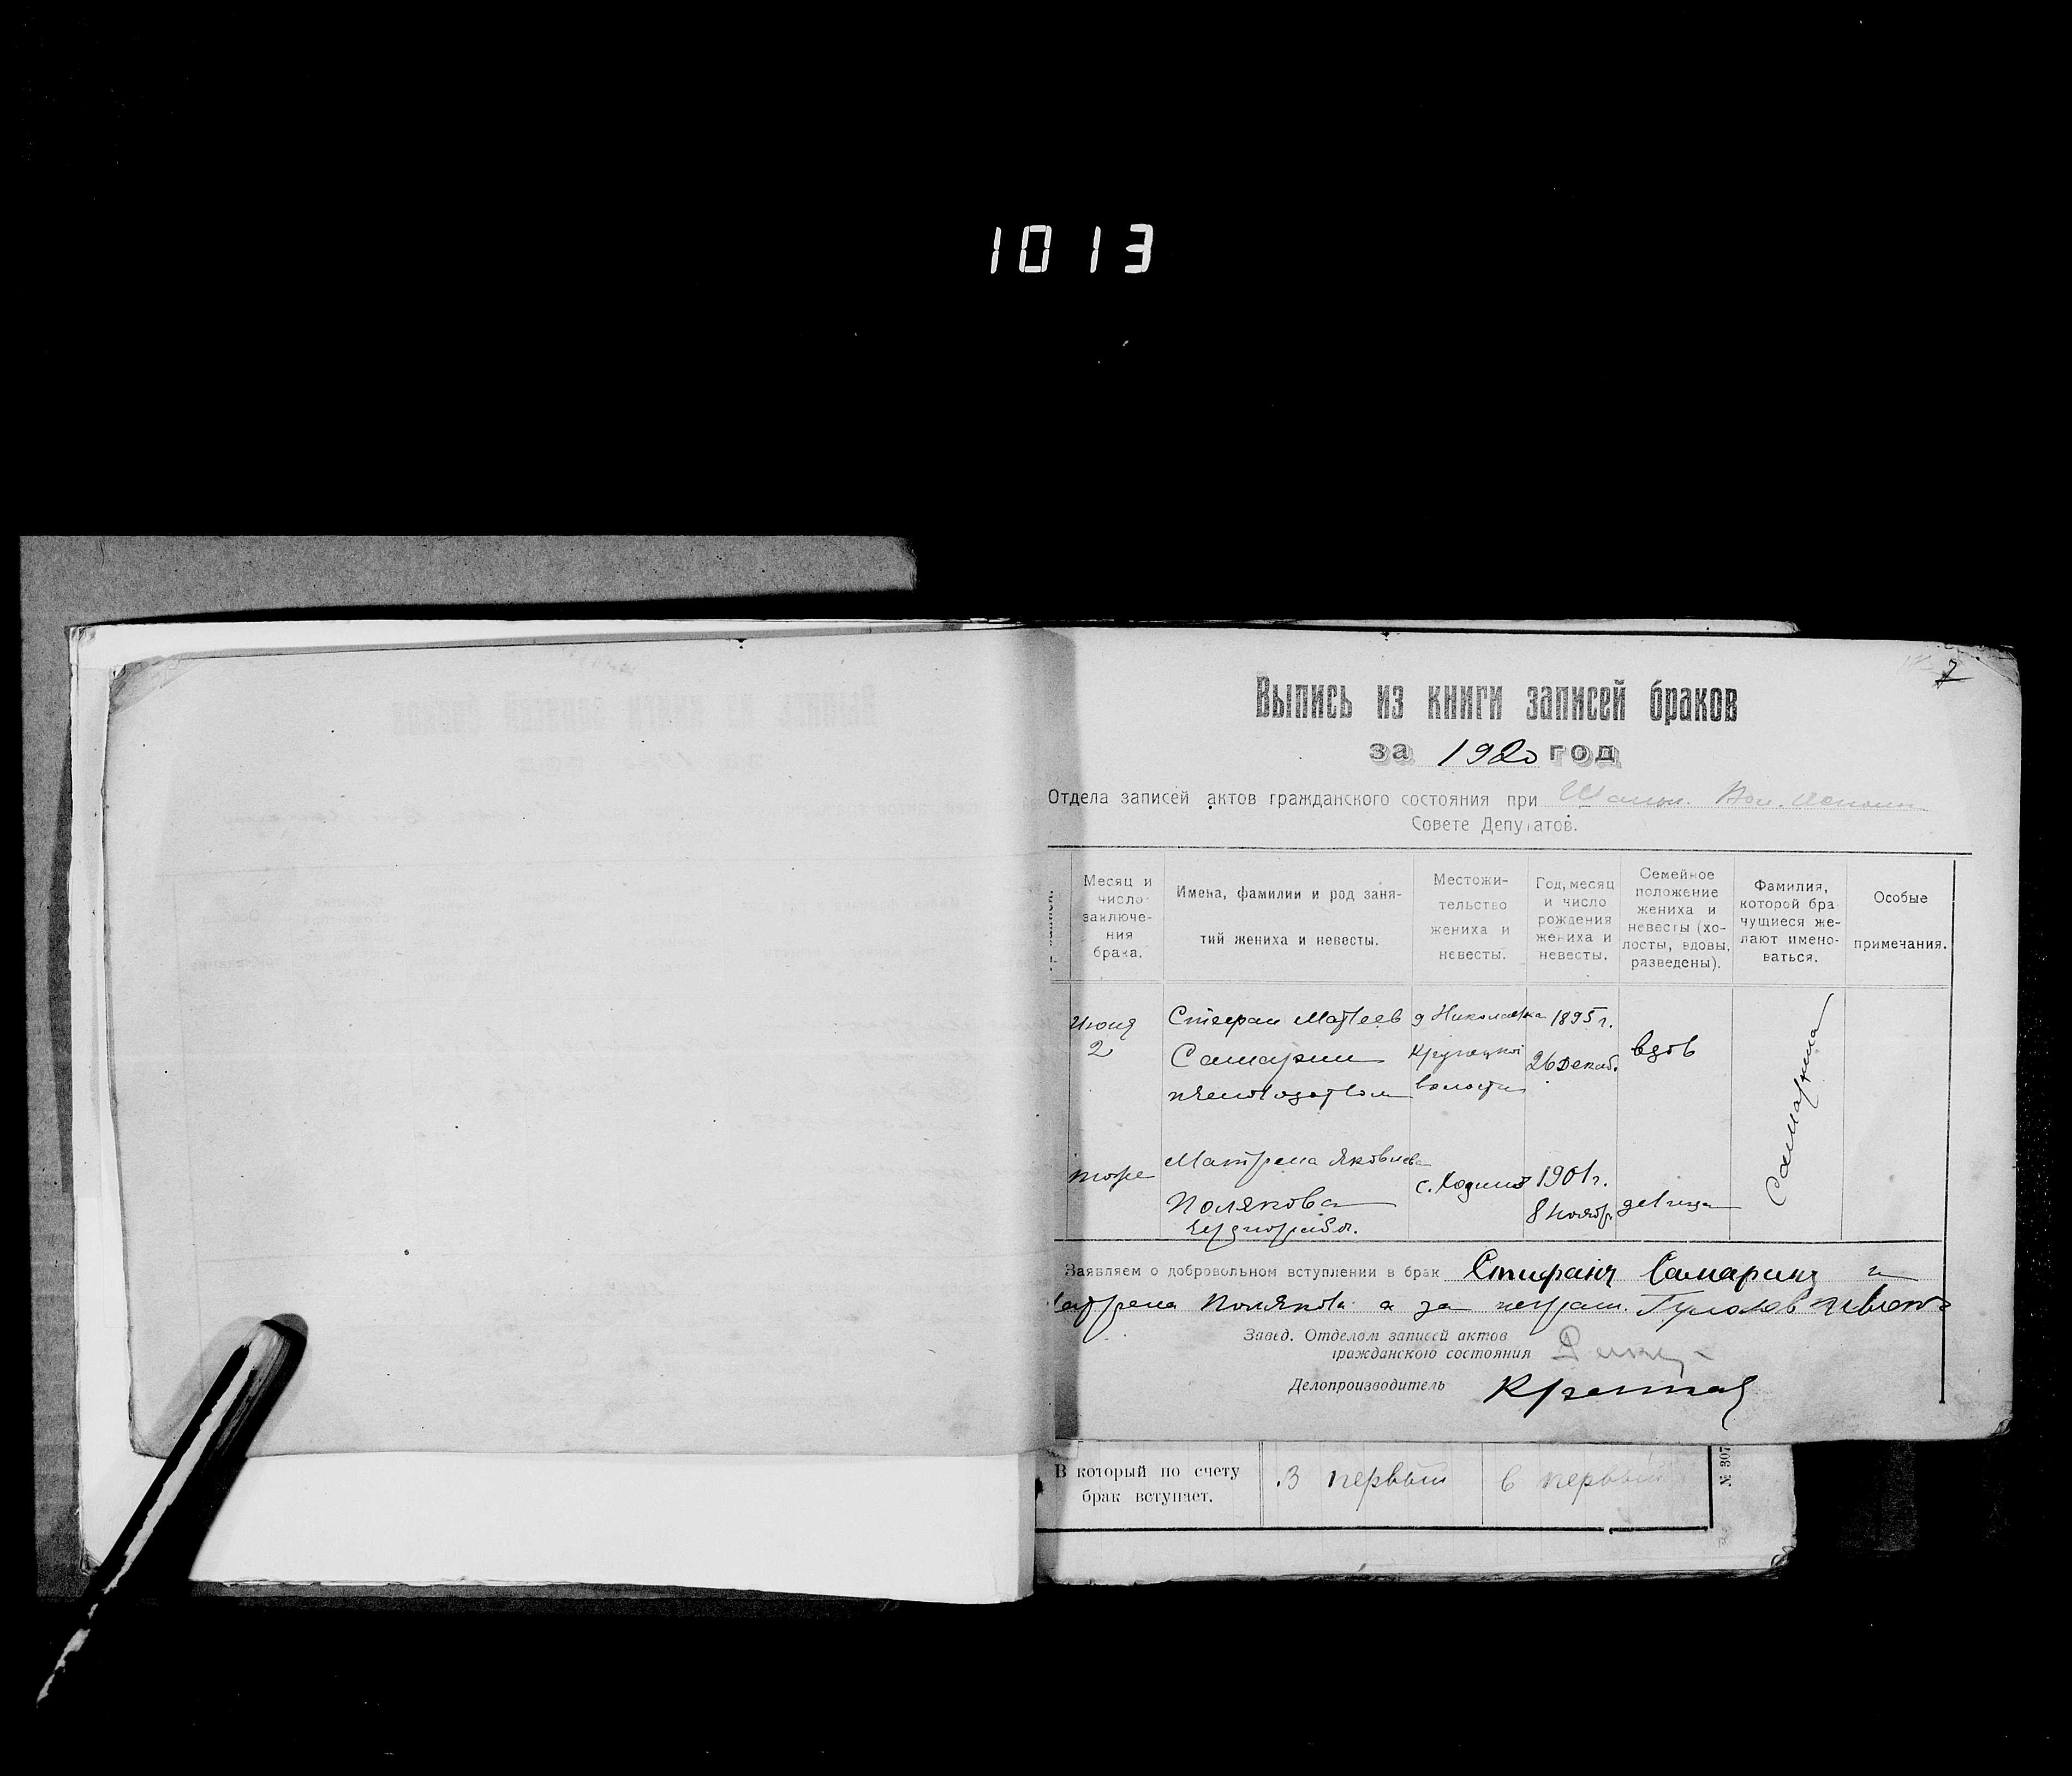 1013
7
Выпись из книги записей браков
за 1920 год
Отдела записей актов гражданского состояния при
Совете Депутатов.
Месяц и число заключения брака.
Имена, фамилии и род занятий жениха и невесты.
Местожительство жениха и невесты.
Год, месяц и число рождения жениха и невесты.
Семейное положение жениха и невесты (холосты, вдовы, разведены).
Фамилия, которой брачущиеся желают именоваться.
Особые примечания.
Июня
2
Стефан Матвеев
Самарин
д Николаевка
волости
1895 г.
26 Декаб.
вдов
Самарина
тоже
Матрена Яковлева
Полякова
с. Ходино
1901 г.
8 Ноябр.
девица
Заявляем о добровольном вступлении в брак Стифанъ Самаринъ и
Полякова а за неграм.
Завед. Отделом записей актов
гражданского состояния
Делопроизводитель
В который по счету
брак вступает.
В первый
в первый
№ 307